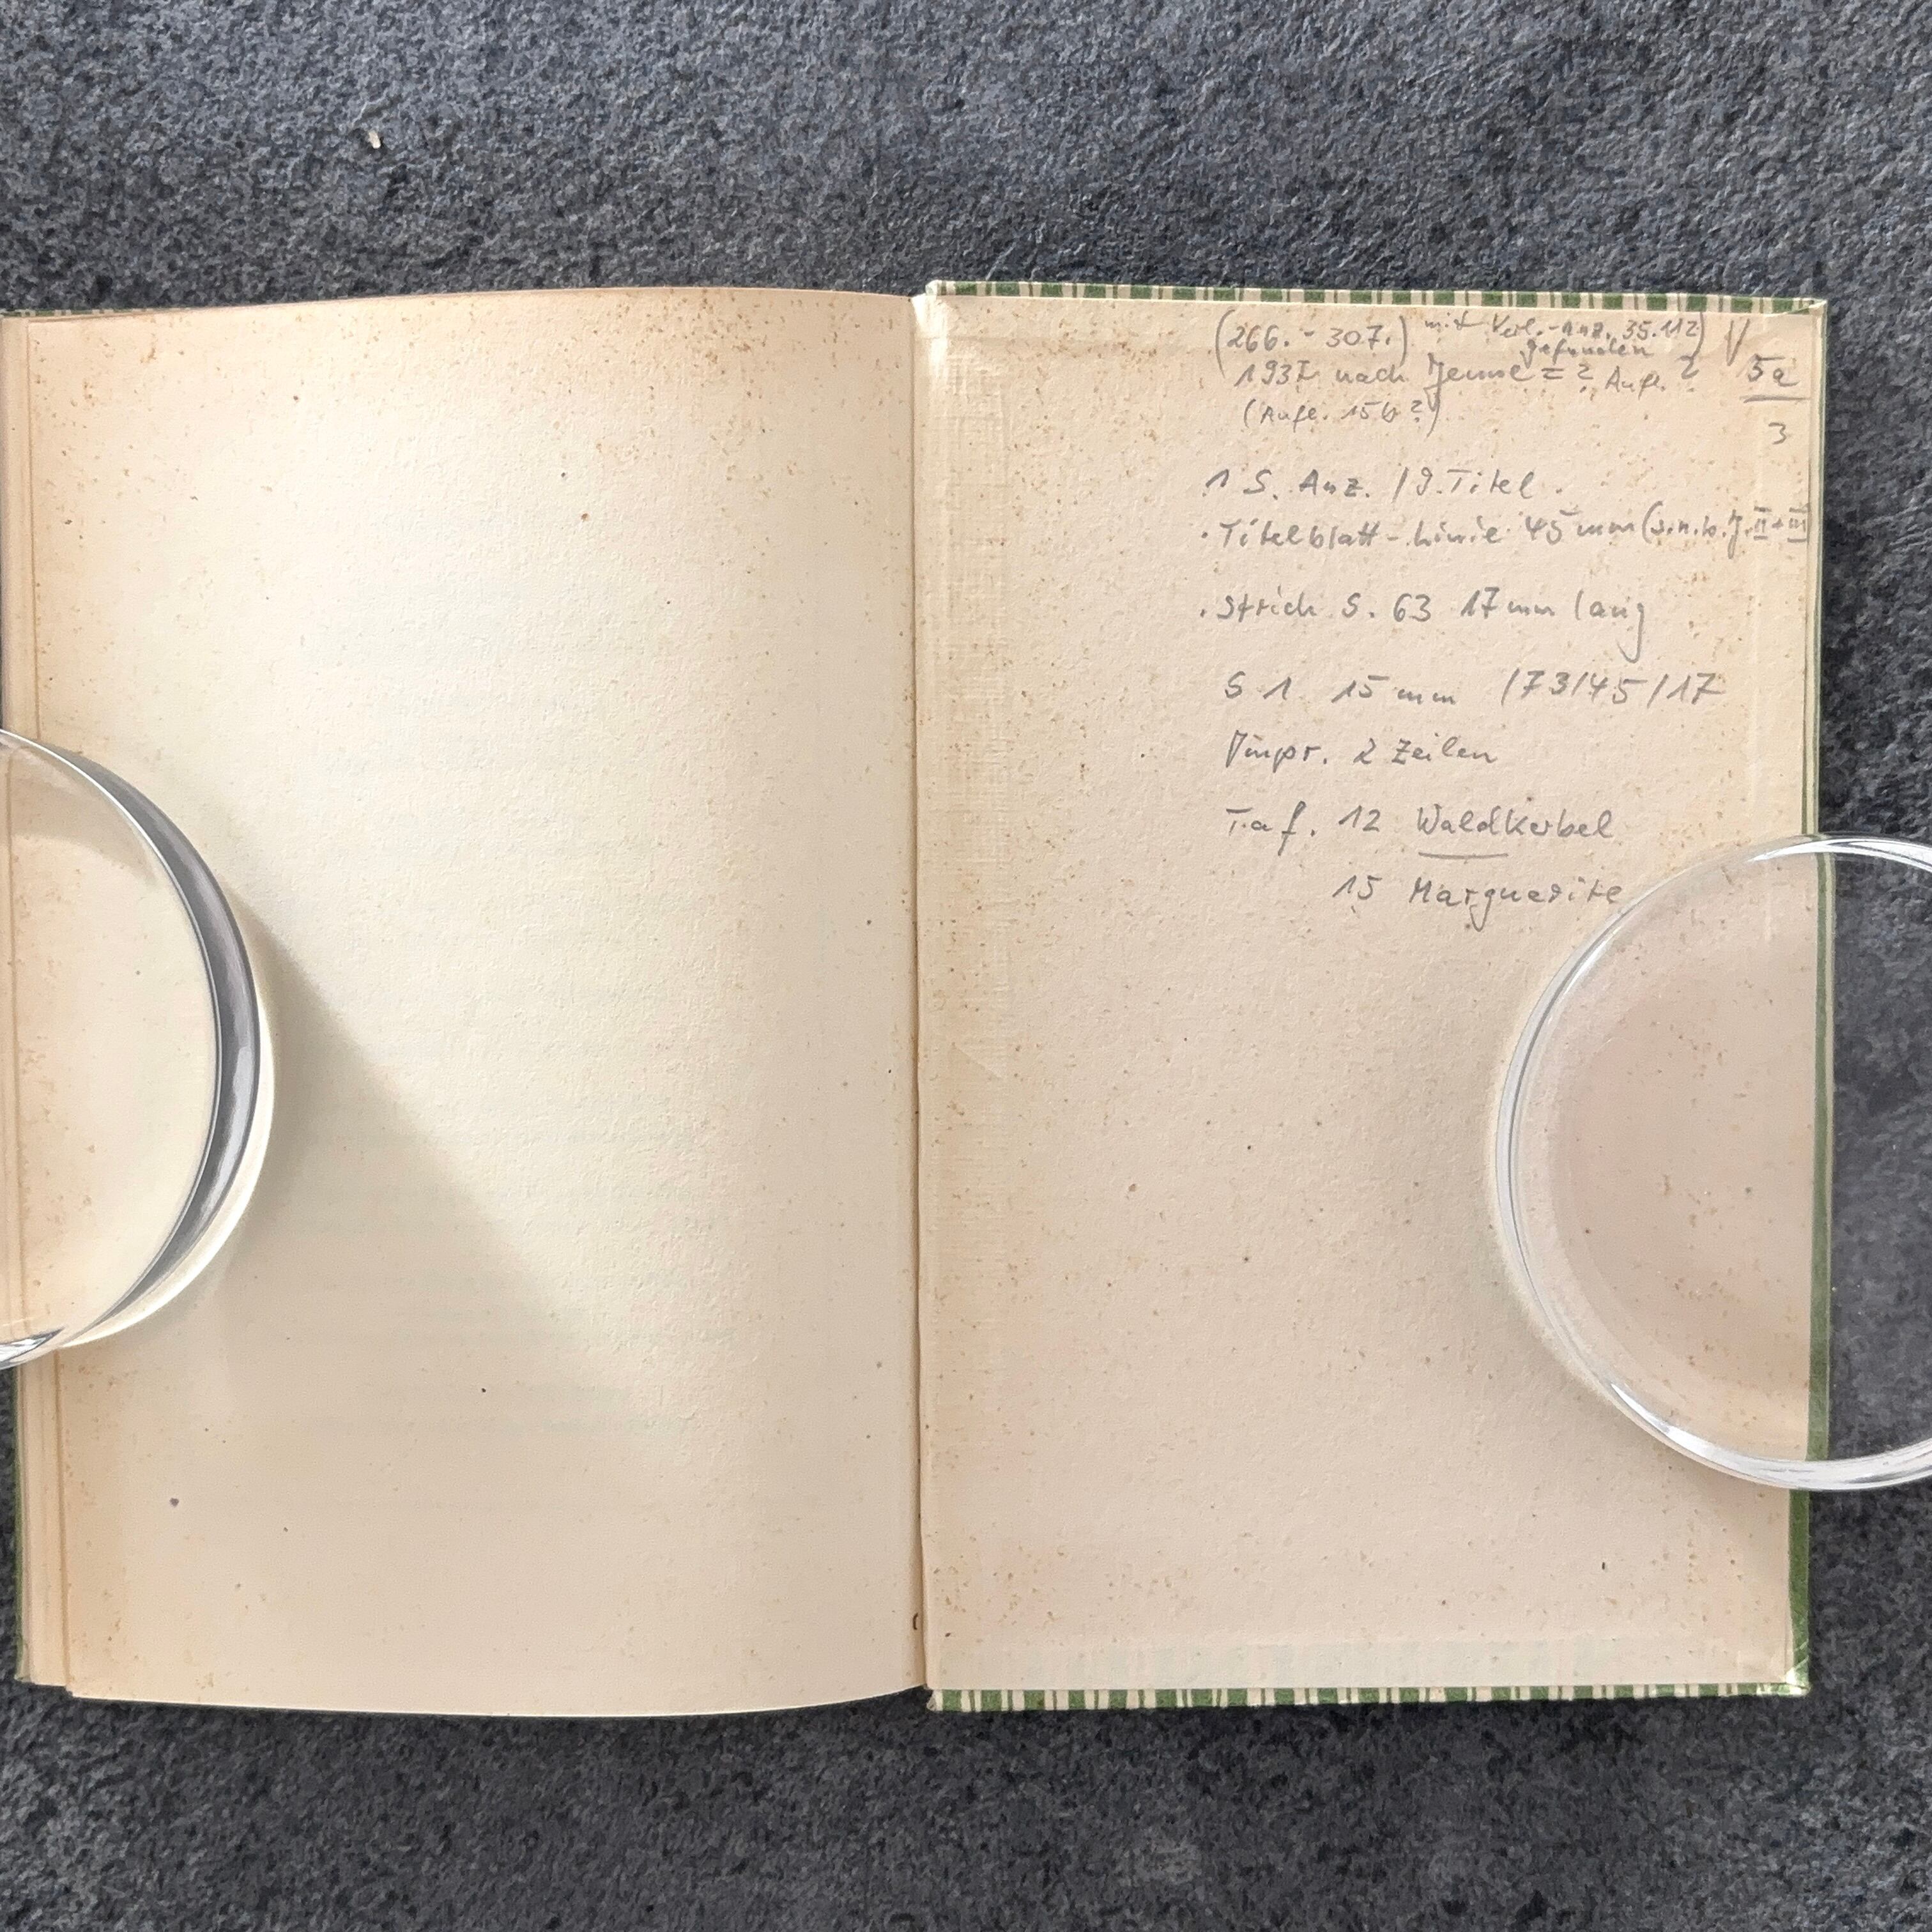 (266. - 307.) mit Verl.-Anz. 35.112) V
gefunden
1937 nach Jenne = ? Aufl. 2 5a
(Aufl. 15b?) 3
1 S. Anz. / 9. Titel.
· Titelblatt-Linie 45 mm (s.n.b. J. II + III)
· Strich S. 63 17 mm lang
S 1. 15 mm /73/45/17
Impr. 2 Zeilen
Taf. 12 Waldkerbel
15 Marguerite